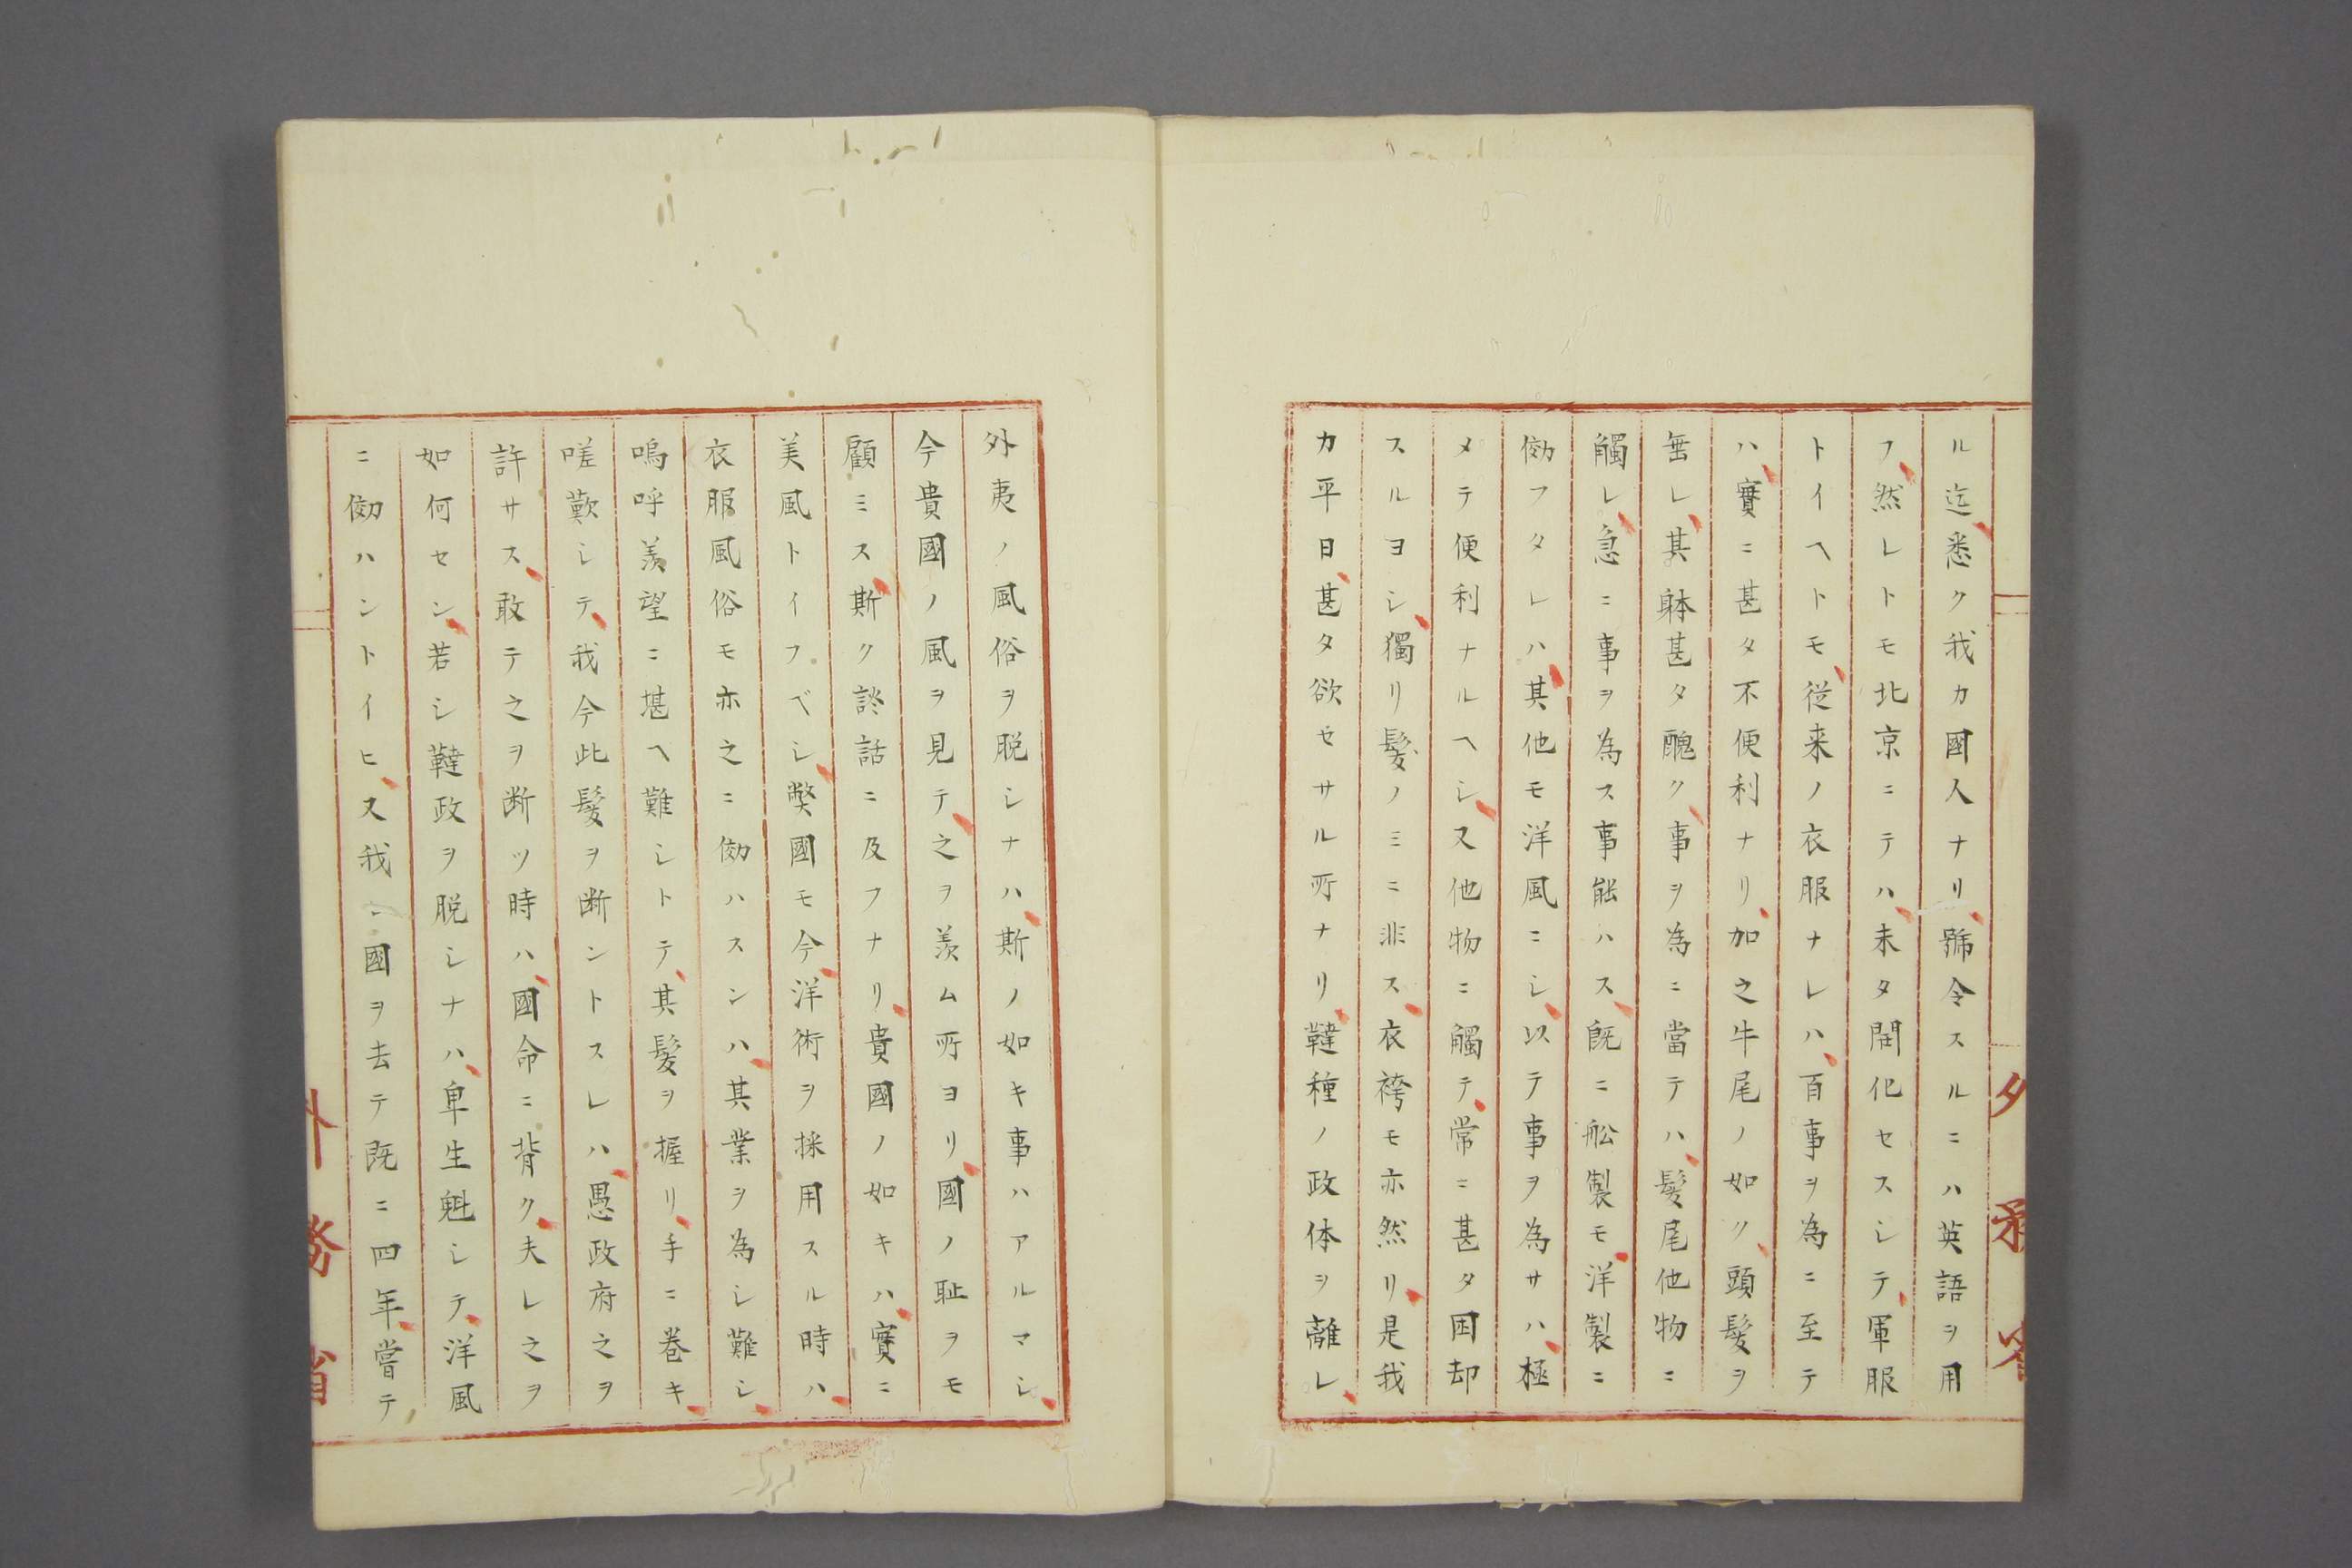 ル迄、悉ク我カ國人ナリ、號令スルニハ英語ヲ用
フ、然レトモ北京ニテハ、未タ開化セスシテ、軍服
トイヘトモ、従来ノ衣服ナレハ、百事ヲ為ニ至テ
ハ、實ニ甚タ不便利ナリ、加之牛尾ノ如ク、頭髮ヲ
垂レ、其躰甚タ醜ク、事ヲ為ニ當テハ、髮尾他物ニ
觸レ、急ニ事ヲ為ス事能ハス、既ニ舩製モ、洋製ニ
傚フタレハ、其他モ洋風ニシ、以テ事ヲ為サハ、極
メテ便利ナルヘシ、又他物ニ觸テ、常ニ甚タ困却
スルヨシ、獨リ髮ノミニ非ス、衣袴モ亦然リ、是我
カ平日、甚タ欲セサル所ナリ、韃種ノ政体ヲ離レ、
外夷ノ風俗ヲ脱シナハ、斯ノ如キ事ハアルマシ、
今貴國ノ風ヲ見テ、之ヲ羨ム所ヨリ、國ノ耻ヲモ
顧ミス、斯ク談話ニ及フナリ、貴國ノ如キハ、實ニ
美風トイフベシ、弊國モ今、洋術ヲ採用スル時ハ、
衣服風俗モ亦之ニ傚ハスンハ、其業ヲ為シ難シ、
嗚呼羨望ニ堪ヘ難シトテ、其髮ヲ握リ、手ニ巻キ、
嗟歎シテ、我今此髮ヲ断ントスレハ、愚政府之ヲ
許サス、敢テ之ヲ断ツ時ハ、國命ニ背ク、夫レ之ヲ
如何セン、若シ韃政ヲ脱シナハ、卑生魁シテ、洋風
ニ傚ハントイヒ、又我ニ國ヲ去テ既ニ四年、嘗テ
外務省